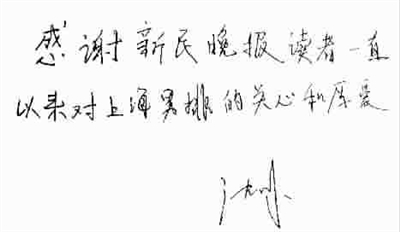 感谢新民晚报读者一直
以来对上海男排的关心和厚爱